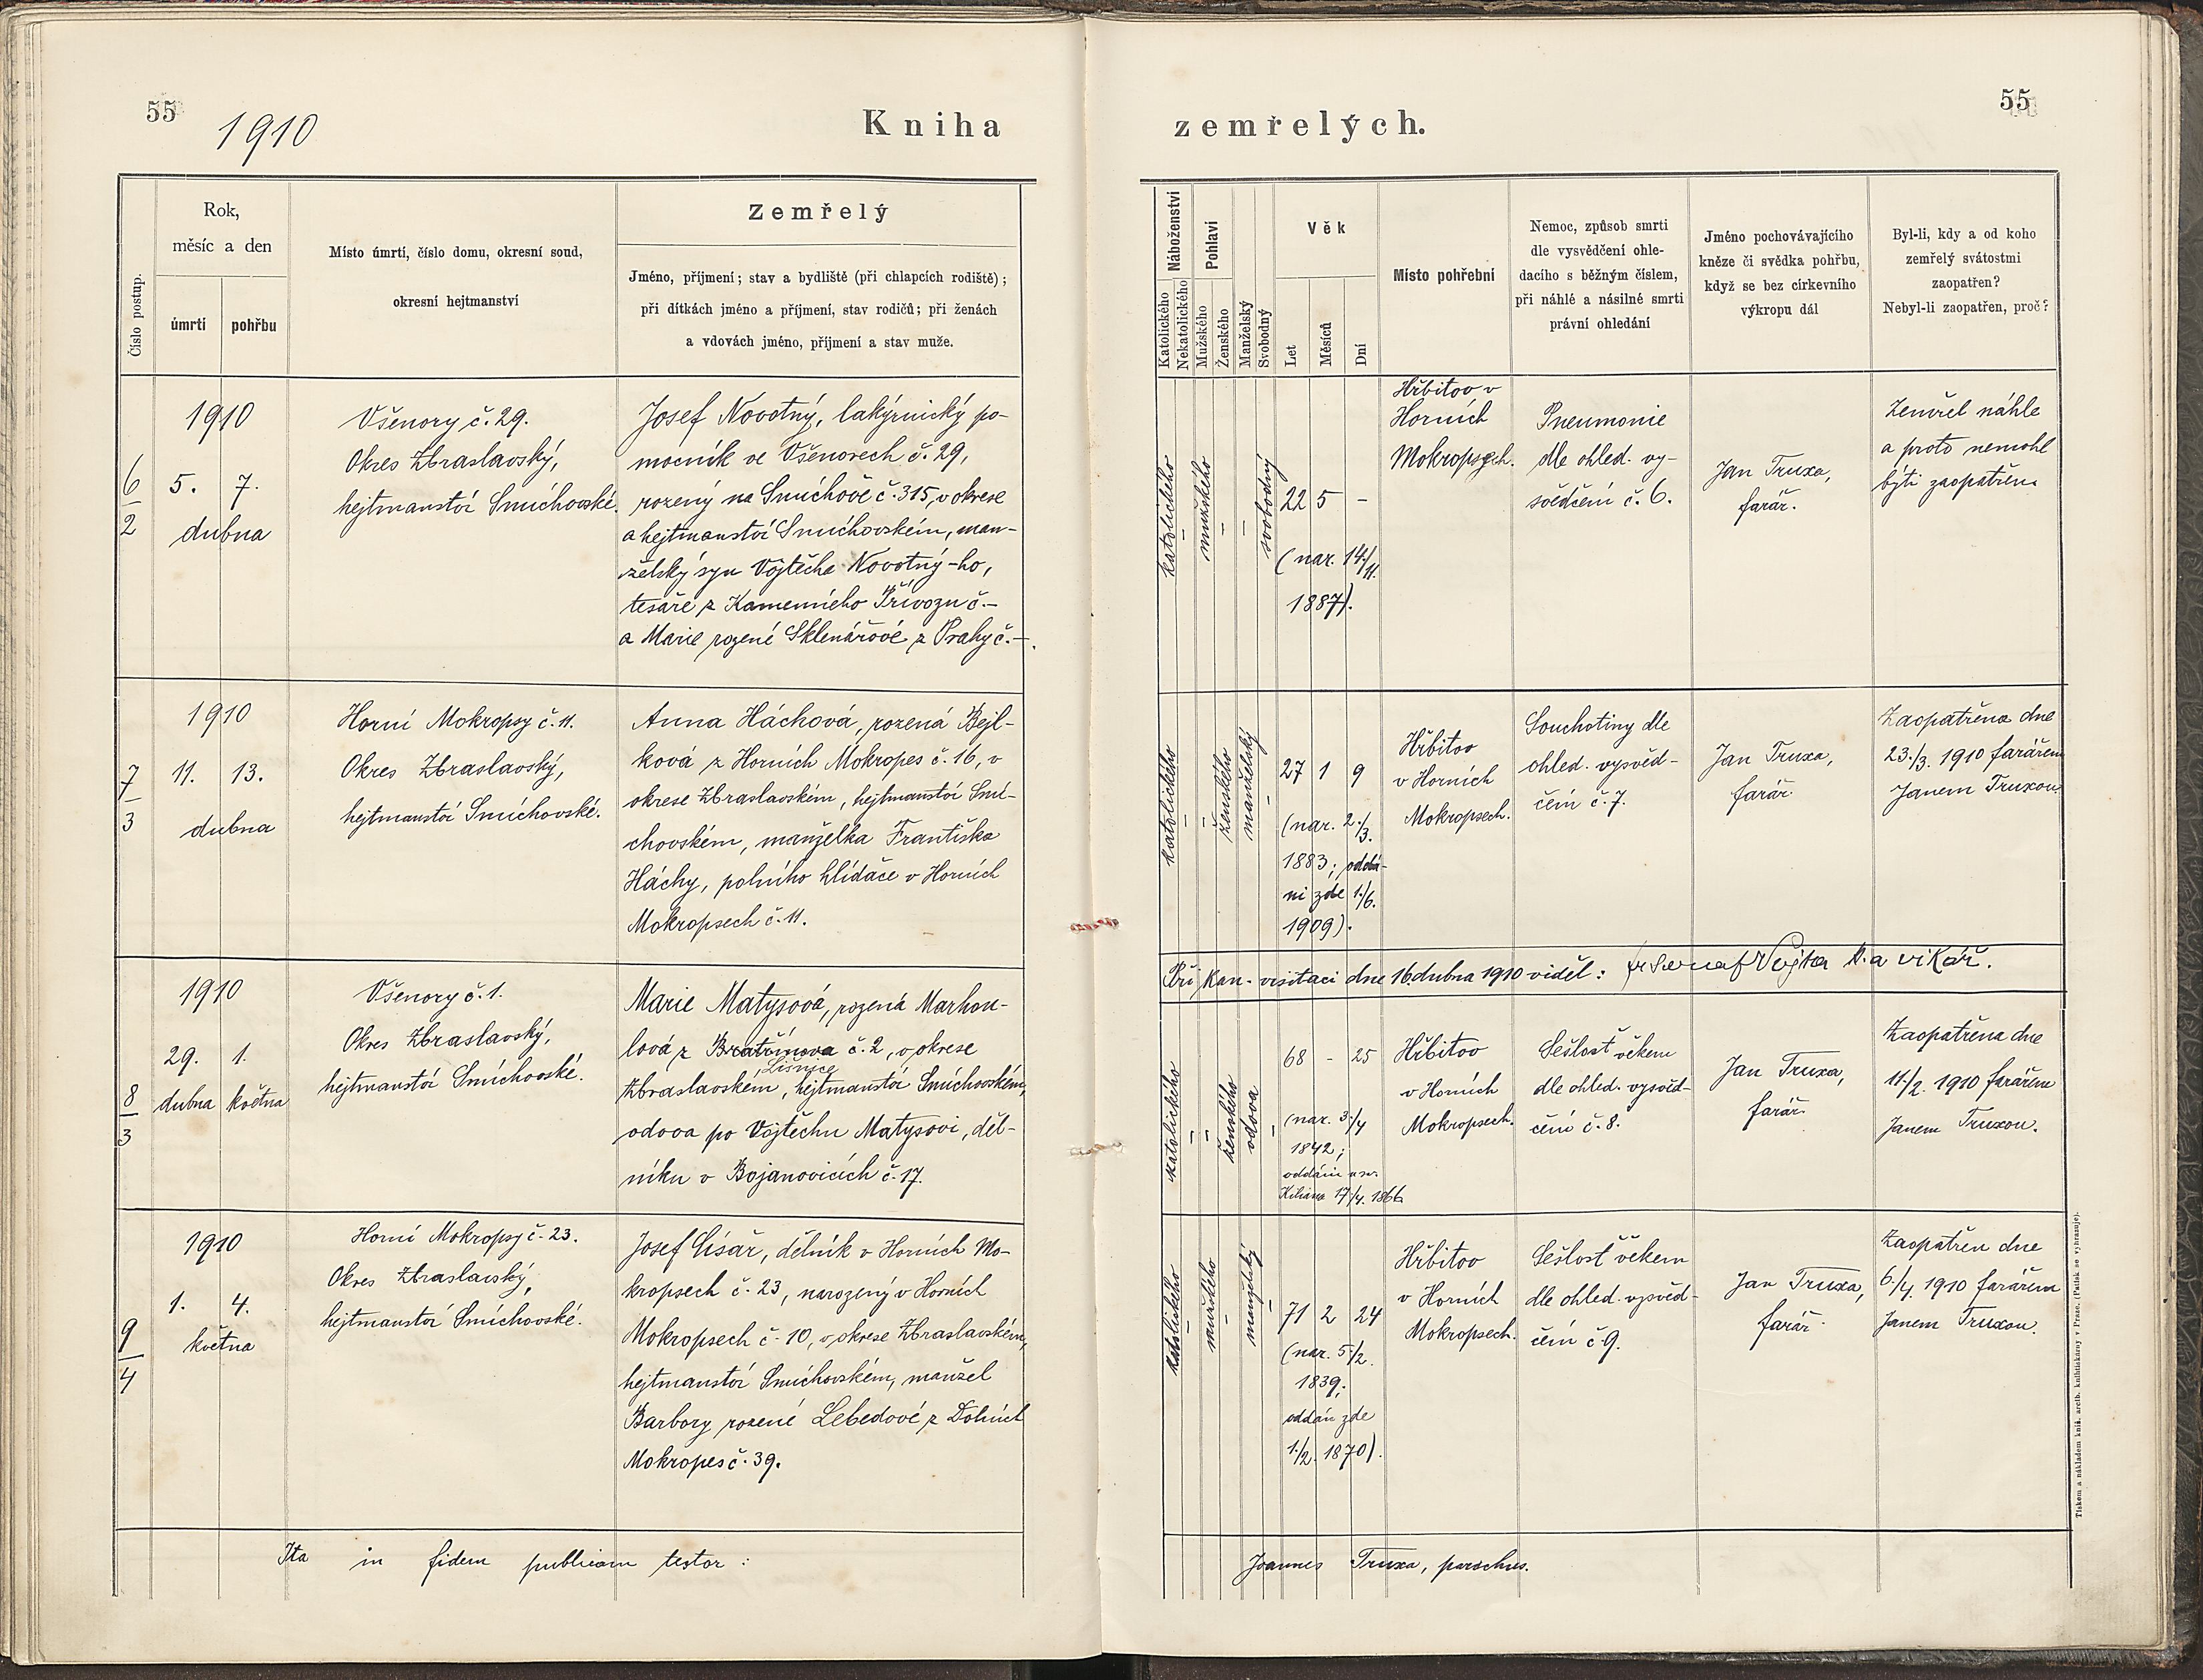 55
1910
Kniha
zemřelých.
55
Číslo postup.
Rok,
měsíc a den
úmrtí
pohřbu
Místo úmrtí, číslo domu, okresní soud,
okresní hejtmanství
Zemřelý
Jméno, příjmení; stav a bydliště (při chlapcích rodiště);
při dítkách jméno a příjmení, stav rodičů; při ženách
a vdovách jméno, příjmení a stav muže.
Náboženství
Katolického
Nekatolického
Pohlaví
Mužského
Ženského
Manželský
Svobodný
Věk
Let
Měsíců
Dní
Místo pohřební
Nemoc, způsob smrti
dle vysvědčení ohle-
dacího s běžným číslem,
při náhlé a násilné smrti
právní ohledání
Jméno pochovávajícího
kněze či svědka pohřbu,
když se bez církevního
výkropu dál
Byl-li, kdy a od koho
zemřelý svátostmi
zaopatřen?
Nebyl-li zaopatřen, proč?
6
2
1910
5. 7.
dubna
Všenory č. 29.
Okres Zbraslavský,
hejtmanství Smíchovské.
Josef Novotný, lakýrnický po-
mocník ve Všenorech č. 29,
rozený na Smíchově č. 315, v okrese
a hejtmanství Smíchovském, man-
želský syn Vojtěcha Novotný-ho,
tesaře z Kamenného Přívozu č. –
a Marie rozené Sklenářové z Prahy č. –.
katolického
–
mužského
–
–
svobodný
22 5 –
(nar. 14./11.
1887).
Hřbitov v
Horních
Mokropsech.
Pneumonie
dle ohled. vy-
svědčení č. 6.
Jan Truxa,
farář.
Zemřel náhle
a proto nemohl
býti zaopatřen.
7
3
1910
11. 13.
dubna
Horní Mokropsy č. 11.
Okres Zbraslavský,
hejtmanství Smíchovské.
Anna Háchová, rozená Bejl-
ková z Horních Mokropes č. 16, v
okrese Zbraslavském, hejtmanství Smí-
chovském, manželka Františka
Háchy, polního hlídače v Horních
Mokropsech č. 11.
katolického
–
–
ženského
manželský
–
27 1 9
(nar. 2./3.
1883; oddá-
ni zde 1./6.
1909).
Hřbitov
v Horních
Mokropsech.
Souchotiny dle
ohled. vysvěd-
čení č. 7.
Jan Truxa,
farář.
Zaopatřena dne
23./3. 1910 farářem
Janem Truxou.
Při kan. visitaci dne 16. dubna 1910 viděl: Vojta b. a vikář.
8
3
1910
29. 1.
dubna května
Všenory č. 1.
Okres Zbraslavský,
hejtmanství Smíchovské.
Marie Matysová, rozená Marhou-
lová z Bratřínova č. 2, v okrese
Líšnice
Zbraslavském, hejtmanství Smíchovském,
vdova po Vojtěchu Matysovi, děl-
níku v Bojanovicích č. 17.
katolického
–
–
ženského
vdova
–
68 – 25
(nar. 3./4
1842;
oddáni u sv.
Kiliana 17./4. 1866
Hřbitov
v Horních
Mokropsech.
Sešlosť věkem
dle ohled. vysvěd-
čení č. 8.
Jan Truxa,
farář.
Zaopatřena dne
11./2. 1910 farářem
Janem Truxou.
9
4
1910
1. 4.
května
Horní Mokropsy č. 23.
Okres Zbraslavský,
hejtmanství Smíchovské.
Josef Císař, dělník v Horních Mo-
kropsech č. 23, narozený v Horních
Mokropsech č. 10, v okrese Zbraslavském,
hejtmanství Smíchovském, manžel
Barbory rozené Lebedové z Dolních
Mokropes č. 39.
katolického
–
mužského
–
manželský
–
71 2 24
(nar. 5./2.
1839;
oddán zde
1./2. 1870).
Hřbitov
v Horních
Mokropsech.
Sešlosť věkem
dle ohled. vysvěd-
čení č 9.
Jan Truxa,
farář.
Zaopatřen dne
6./4. 1910 farářem
Janem Truxou.
Ita in fidem publicam testor:
Joannes Truxa, parochus.
Tiskem a nákladem kníž. arcib. knihtiskárny v Praze. (Patisk se vyhrazuje).